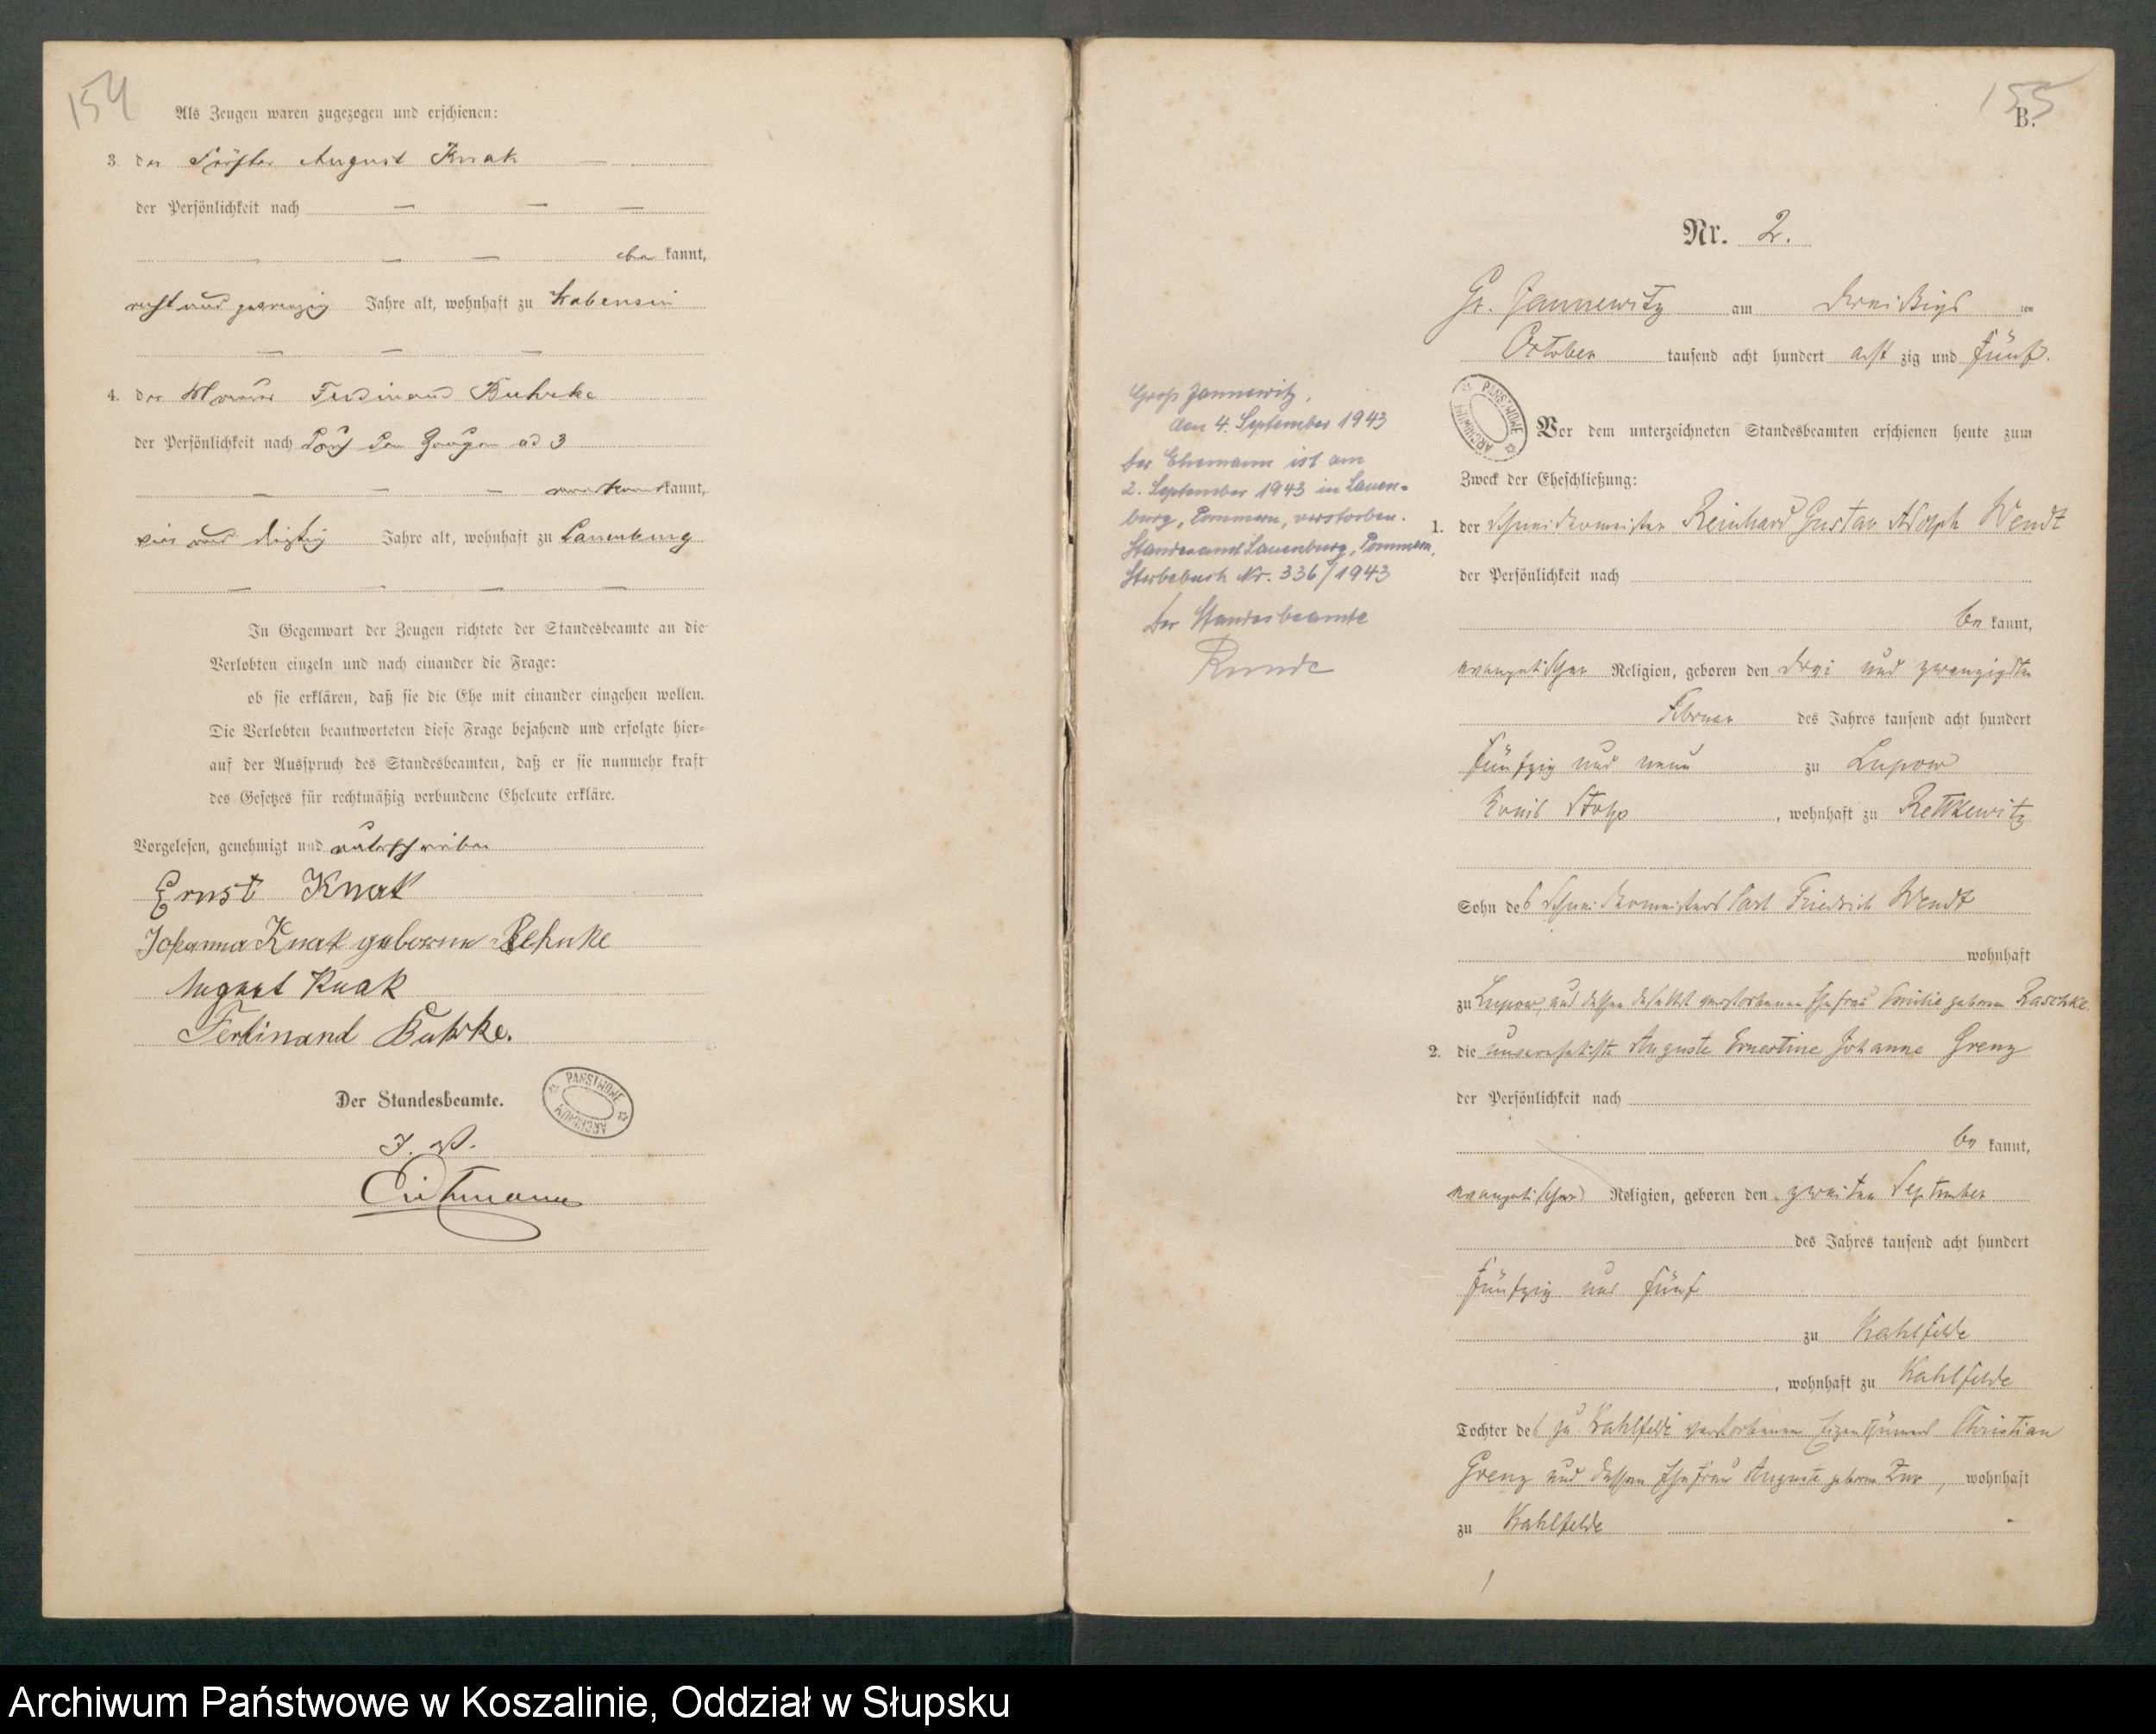 154
Als Zeugen waren zugezogen und erschienen:
3. der Förster August Knak
der Persönlichkeit nach
be kannt,
acht und zwanzig Jahre alt, wohnhaft zu Labensin
4. der Ferdinand Buhrke
der Persönlichkeit nach durch den Zeugen ad 3
kannt,
vier und dreißig Jahre alt, wohnhaft zu Lauenburg
In Gegenwart der Zeugen richtete der Standesbeamte an die
Verlobten einzeln und nach einander die Frage:
ob sie erklären, daß sie die Ehe mit einander eingehen wollen.
Die Verlobten beantworteten diese Frage bejahend und erfolgte hier-
auf der Ausspruch des Standesbeamten, daß er sie nunmehr kraft
des Gesetzes für rechtmäßig verbundene Eheleute erkläre.
Vorgelesen, genehmigt und unterschrieben
Ernst Knak
Johanna Knak geborene Behnke
August Knak
Ferdinand Buhrke.
Der Standesbeamte.
PAŃSTWOWE ARCHIWUM
I. V.
155
B.
Nr. 2.
Gr. Jannewitz am dreißigs ten
October tausend acht hundert acht zig und fünf.
PAŃSTWOWE ARCHIWUM
Vor dem unterzeichneten Standesbeamten erschienen heute zum
Zweck der Eheschließung:
1. der Schneidermeister Reinhard Gustav Adolph Wendt
der Persönlichkeit nach
be kannt,
evangelischer Religion, geboren den drei und zwanzigsten
Februar des Jahres tausend acht hundert
fünfzig und neun zu Lupow
Kreis Stolp, wohnhaft zu Rettkewitz
Sohn des Schneidermeisters Carl Friedrich Wendt
wohnhaft
zu Lupow, und dessen daselbst verstorbenen Ehefrau Emilie geborene Raschke.
2. die unverehelichte Auguste Ernestine Johanne Grenz
der Persönlichkeit nach
be kannt,
evangelischer Religion, geboren den zweiten September
des Jahres tausend acht hundert
fünfzig und fünf
zu Kahlfelde
, wohnhaft zu Kahlfelde
Tochter des zu Kahlfelde verstorbenen Eigenthümers Christian
Grenz und dessen Ehefrau Auguste geborene, wohnhaft
zu Kahlfelde
Groß Jannewitz,
den 4. September 1943
Der Ehemann ist am
2. September 1943 in Lauen-
burg, Pommern, verstorben.
Standesamt Lauenburg, Pommern,
Sterbebuch Nr. 336/1943
Der Standesbeamte
Archiwum Państwowe w Koszalinie, Oddział w Słupsku